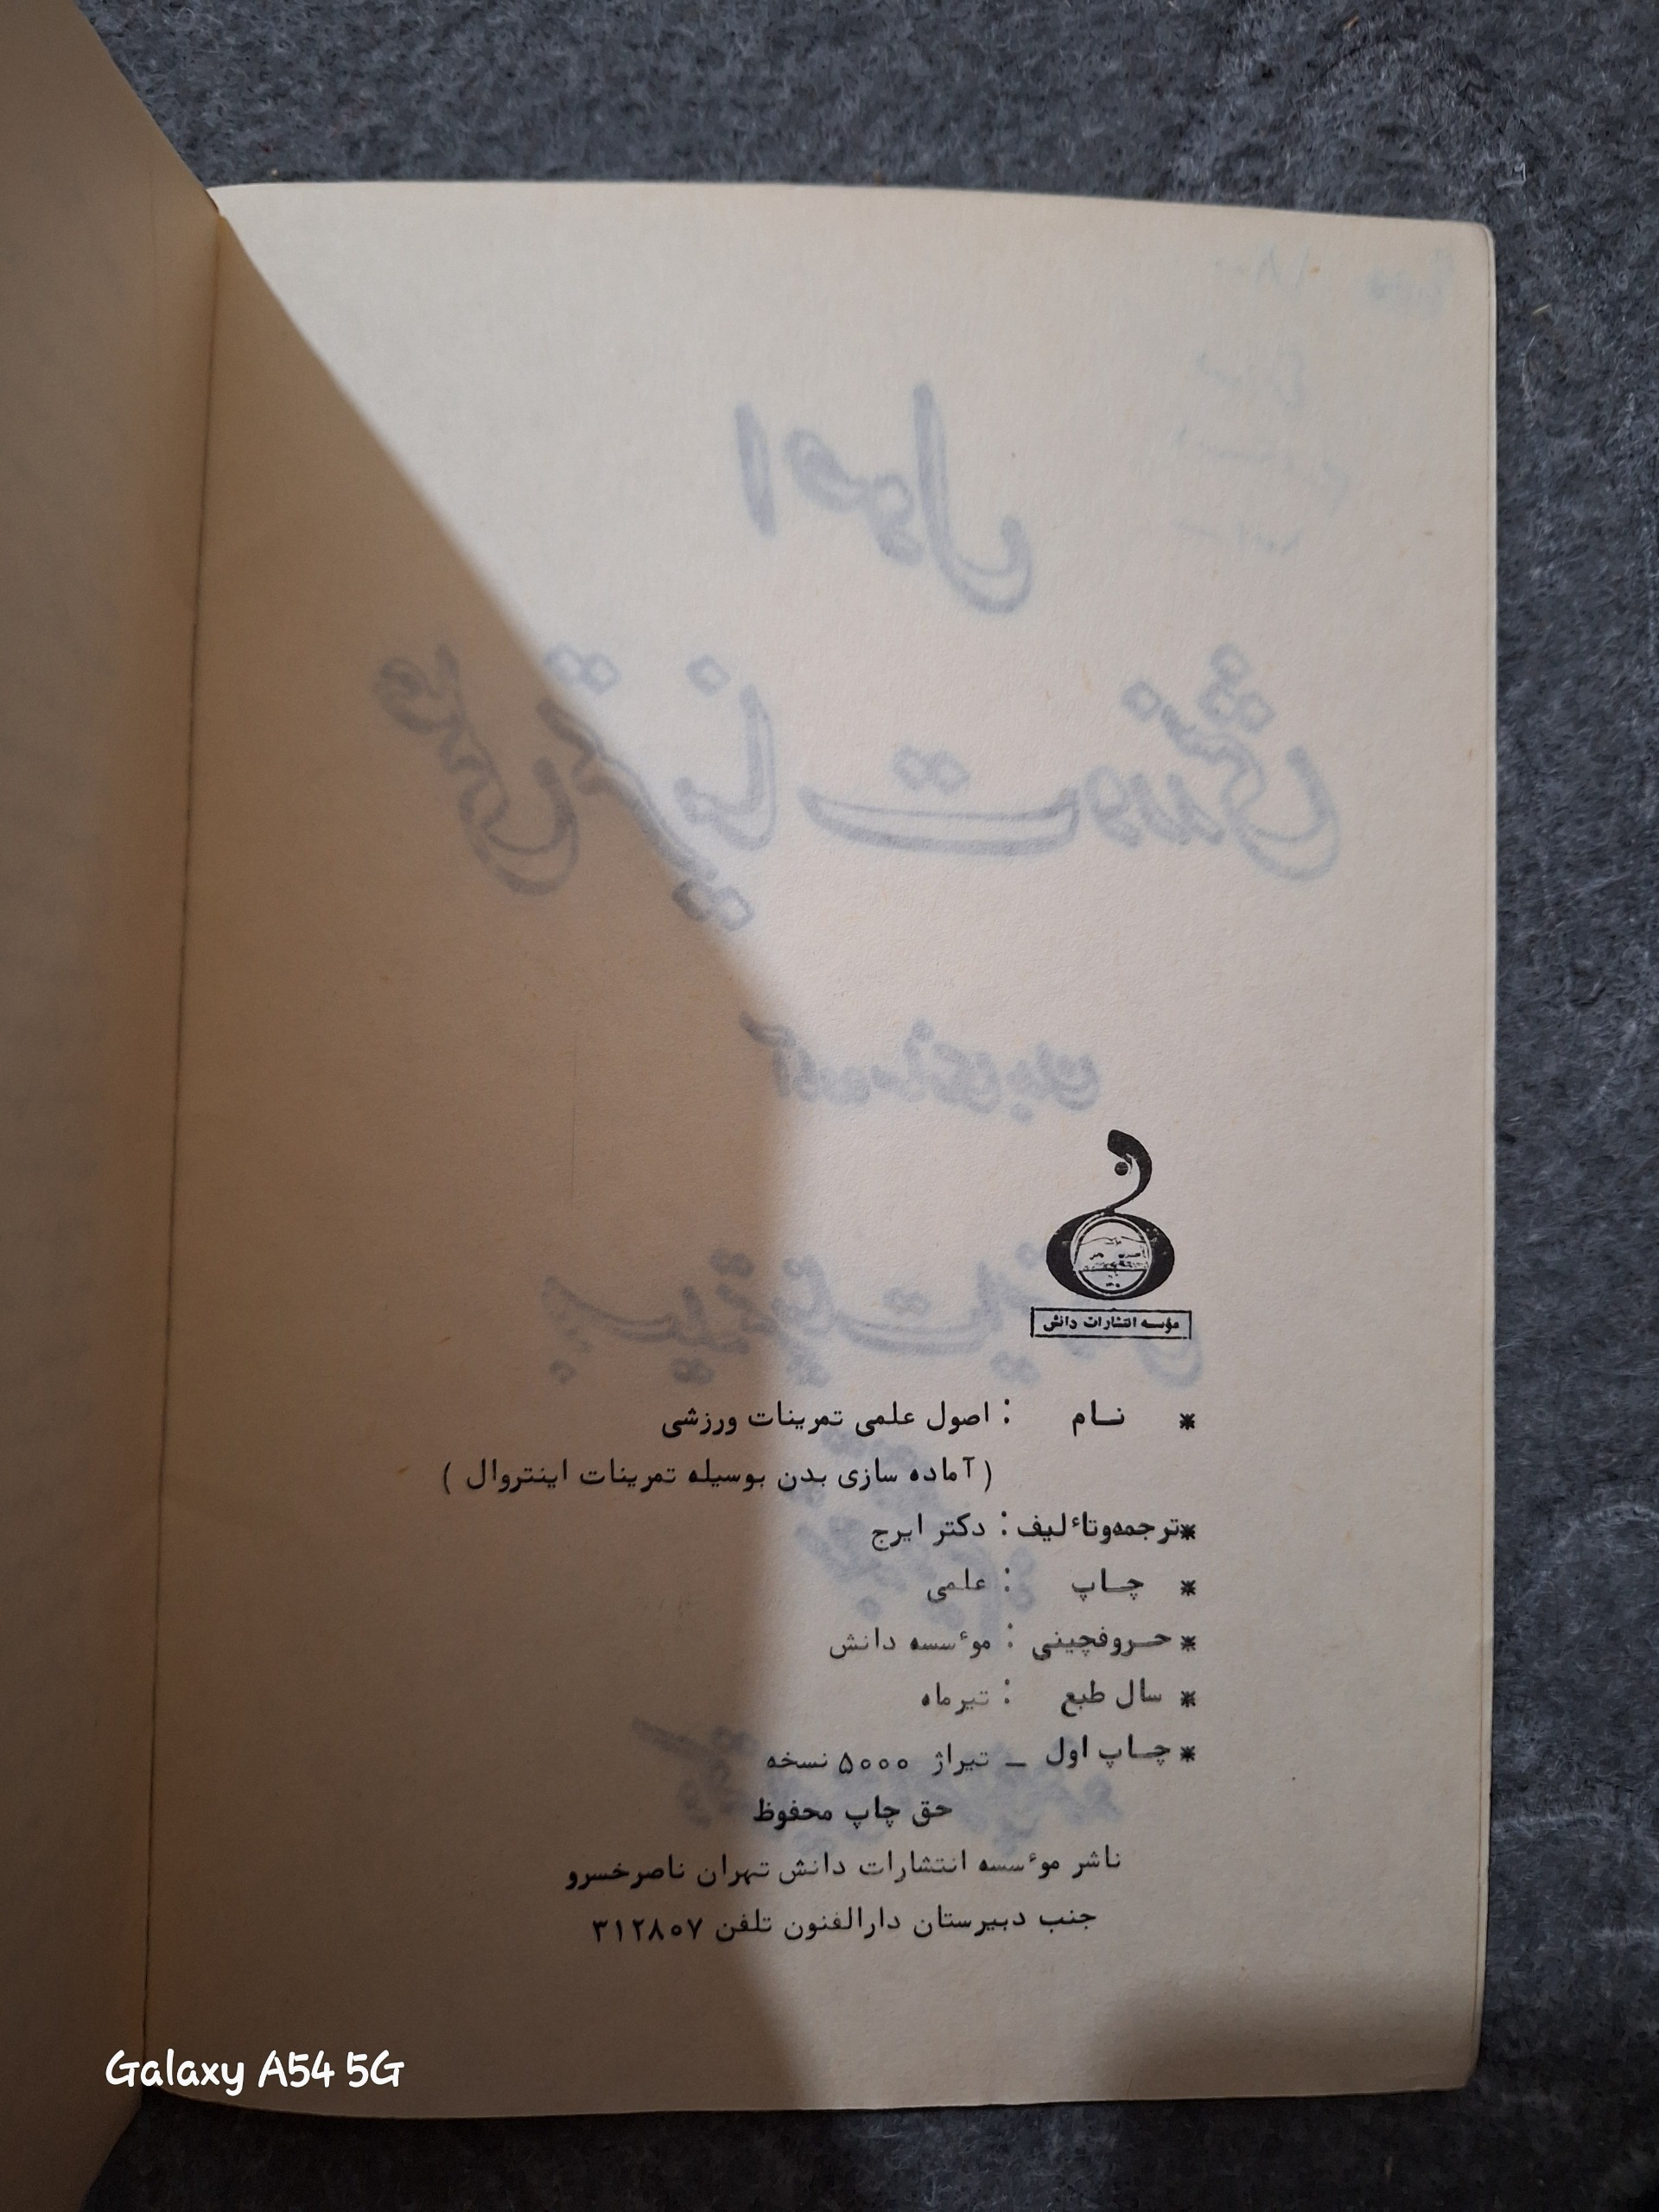 مؤسسه انتشارات دانش
* نـام : اصول علمی تمرینات ورزشی
( آماده سازی بدن بوسیله تمرینات اینتروال )
*ترجمه‌وتاءلیف : دکتر ایرج
* چـاپ : علمی
* حـروفچینی : موءسسه دانش
* سال طبع : تیرماه
* چـاپ اول ـ تیراژ ۵۰۰۰ نسخه
حق چاپ محفوظ
ناشر موءسسه انتشارات دانش تهران ناصرخسرو
جنب دبیرستان دارالفنون تلفن ۳۱۲۸۰۷
Galaxy A54 5G